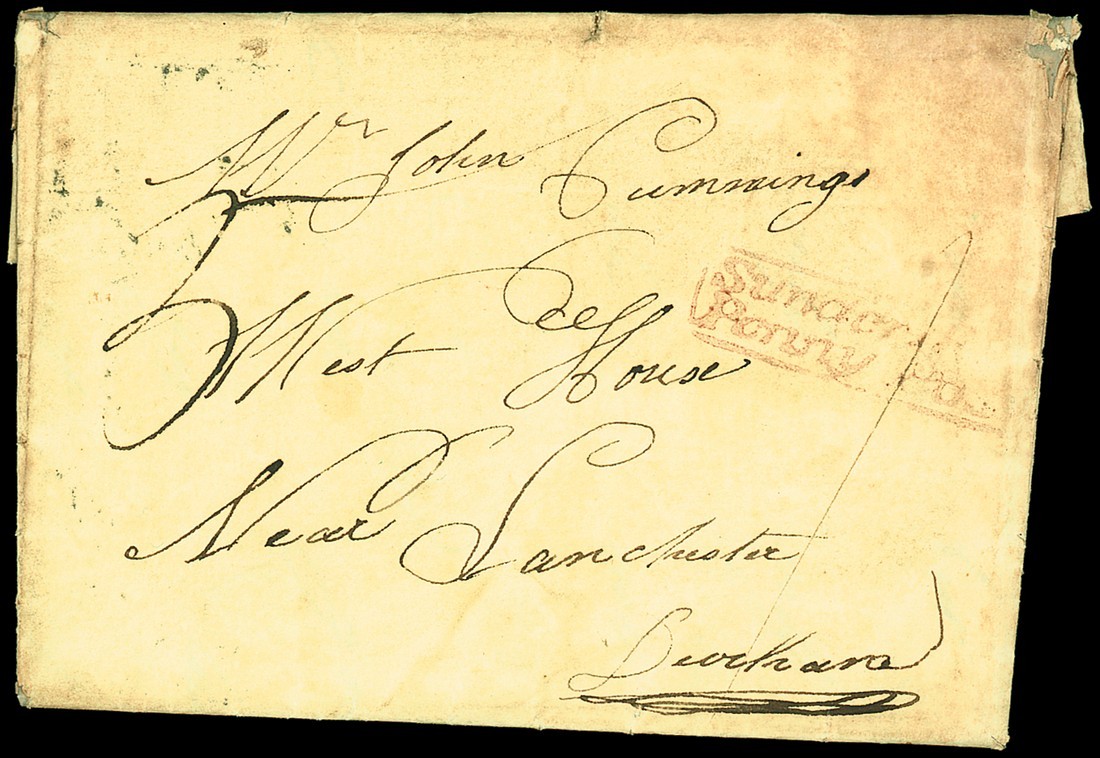 Mr John Cummings
5
West House
Near Lanchester
Durham
Penny
1